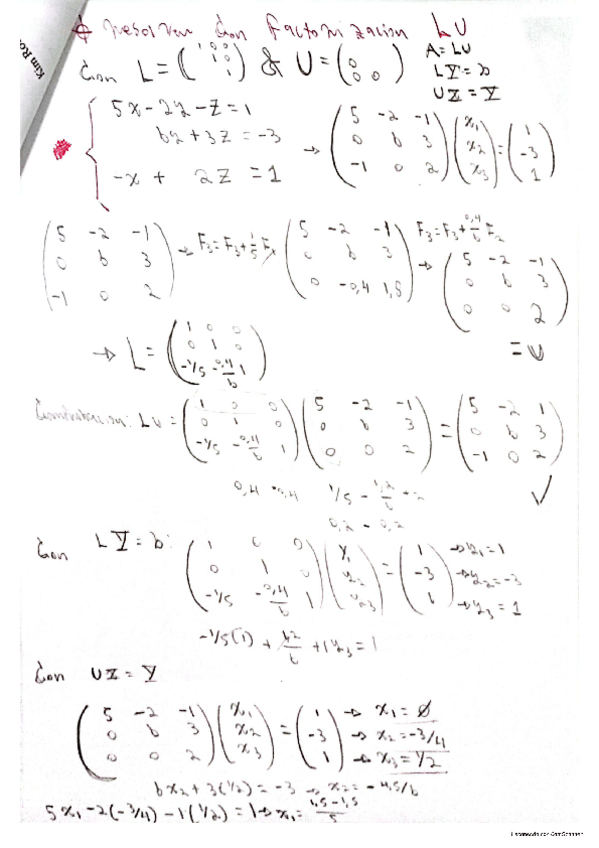 resolver con factorización LU
Con L = (1 0 0 1 0 1) & U = (0 0 0) A = LU
LY = b
UX = Y
5x - 2y - z = 1
6y + 3z = -3
-x + 2z = 1
→ (5 -2 -1 0 6 3 -1 0 2) (x1 x2 x3) = (1 -3 1)
(5 -2 -1 0 6 3 -1 0 2) → F3 = F3 + 1/5 F1 (5 -2 -1 0 6 3 0 -0,4 1,8) F3 = F3 + 0,4/6 F2 → (5 -2 -1 0 6 3 0 0 2) = U
→ L = (1 0 0 0 1 0 -1/5 -0,4/6 1)
Comprobacion: LU = (1 0 0 0 1 0 -1/5 -0,4/6 1) (5 -2 -1 0 6 3 0 0 2) = (5 -2 1 0 6 3 -1 0 2) ✓
0,4 - 0,4 1/5 - 1,2/6 + 2
0,2 - 0,2
Con LY = b:
(1 0 0 0 1 0 -1/5 -0,4/6 1) (y1 y2 y3) = (1 -3 1) → y1 = 1 → y2 = -3 → y3 = 1
-1/5(1) + 1,2/6 + 1y3 = 1
Con UX = Y
(5 -2 -1 0 6 3 0 0 2) (x1 x2 x3) = (1 -3 1) → x1 = 0 → x2 = -3/4 → x3 = 1/2
6x2 + 3(1/2) = -3 → x2 = -4,5/6
5x1 - 2(-3/4) - 1(1/2) = 1 → x1 = 1,5 - 1,5/5